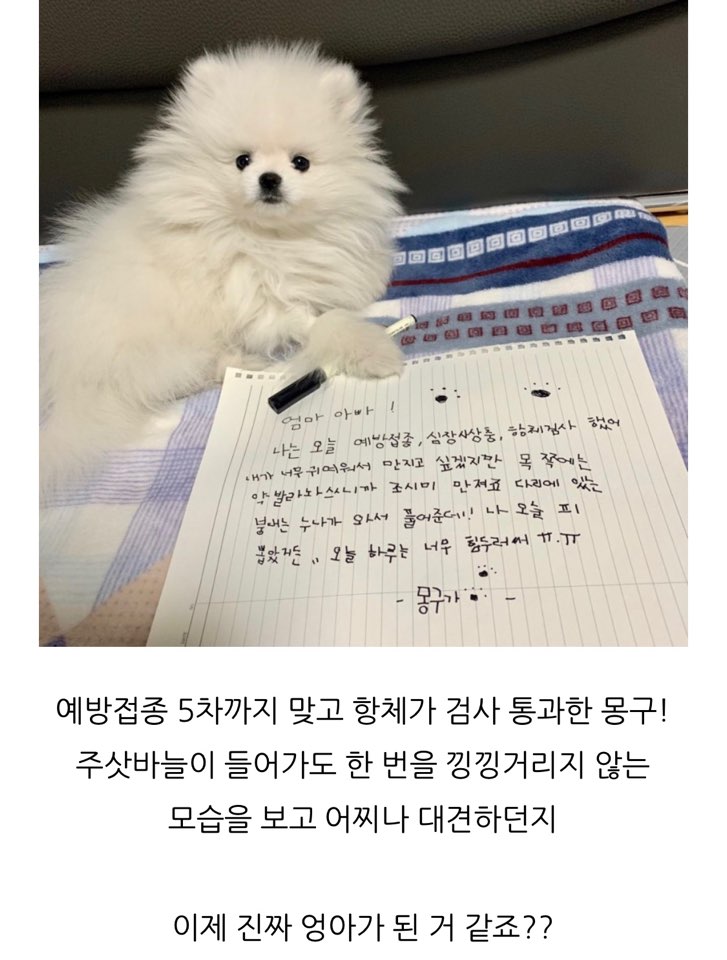 엄마 아빠 !
나는 오늘 예방접종, 심장사상충, 항체검사 했어
내가 너무 귀여워서 만지고 싶겠지만 목 쪽에는
약 발라놔스니까 조시미 만져죠 다리에 있는
붕대는 누나가 와서 풀어준대!! 나 오늘 피
뽑았거든,, 오늘 하루는 너무 힘두러써 ㅠ.ㅠ
- 몽구가 -
예방접종 5차까지 맞고 항체가 검사 통과한 몽구!
주삿바늘이 들어가도 한 번을 낑낑거리지 않는
모습을 보고 어찌나 대견하던지
이제 진짜 엉아가 된 거 같죠??